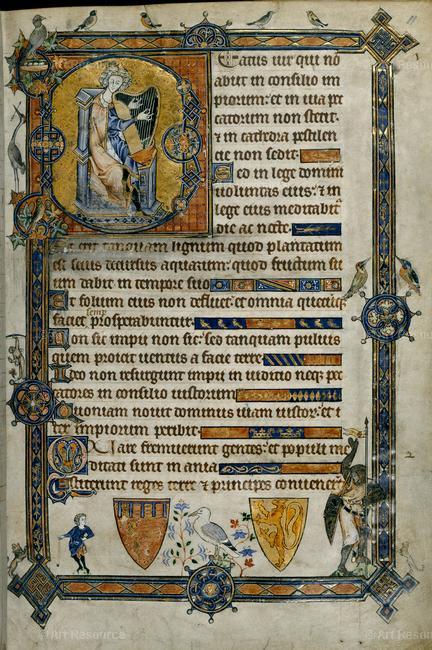 Beatus uir qui nō
abiit in consilio im
piorum: et in uia pe
catorum non stetit:
& in cathedra pestilen
cie non sedit.
Sed in lege domini
uoluntas eius: & in
lege eius meditabit᷑
die ac nocte.
Et erit tanquam lignum quod plantatum
est secus decursus aquarum: quod fructum su
um dabit in tempore suo
Et folium eius non defluet: et omnia quecūq;
semp
faciet prosperabuntur.
Non sic impii non sic: sed tanquam puluis
quem proicit uentus a facie terre.
Ideo non resurgunt impii in iudicio neq; pec
catores in consilio iustorum
Quoniam nouit dominus uiam iustorum: et i
ter impiorum peribit.
Quare fremuerunt gentes: et populi me
ditati sunt in ania
Astiterunt reges terre & principes conuener̄
© Art Resource